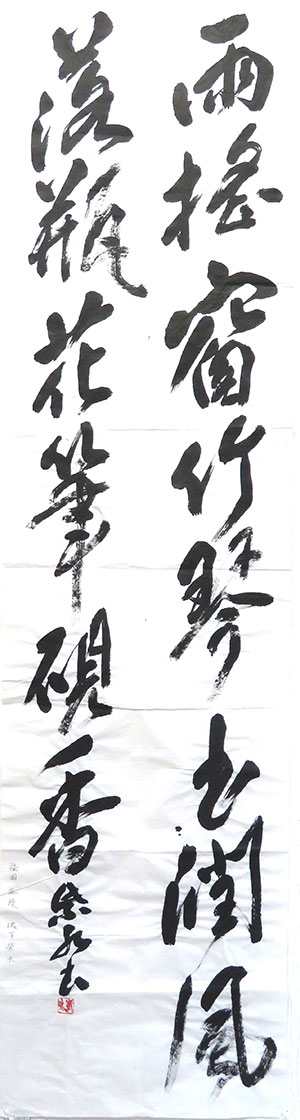 雨搖窗竹琴書潤風
落瓶花筆硯香